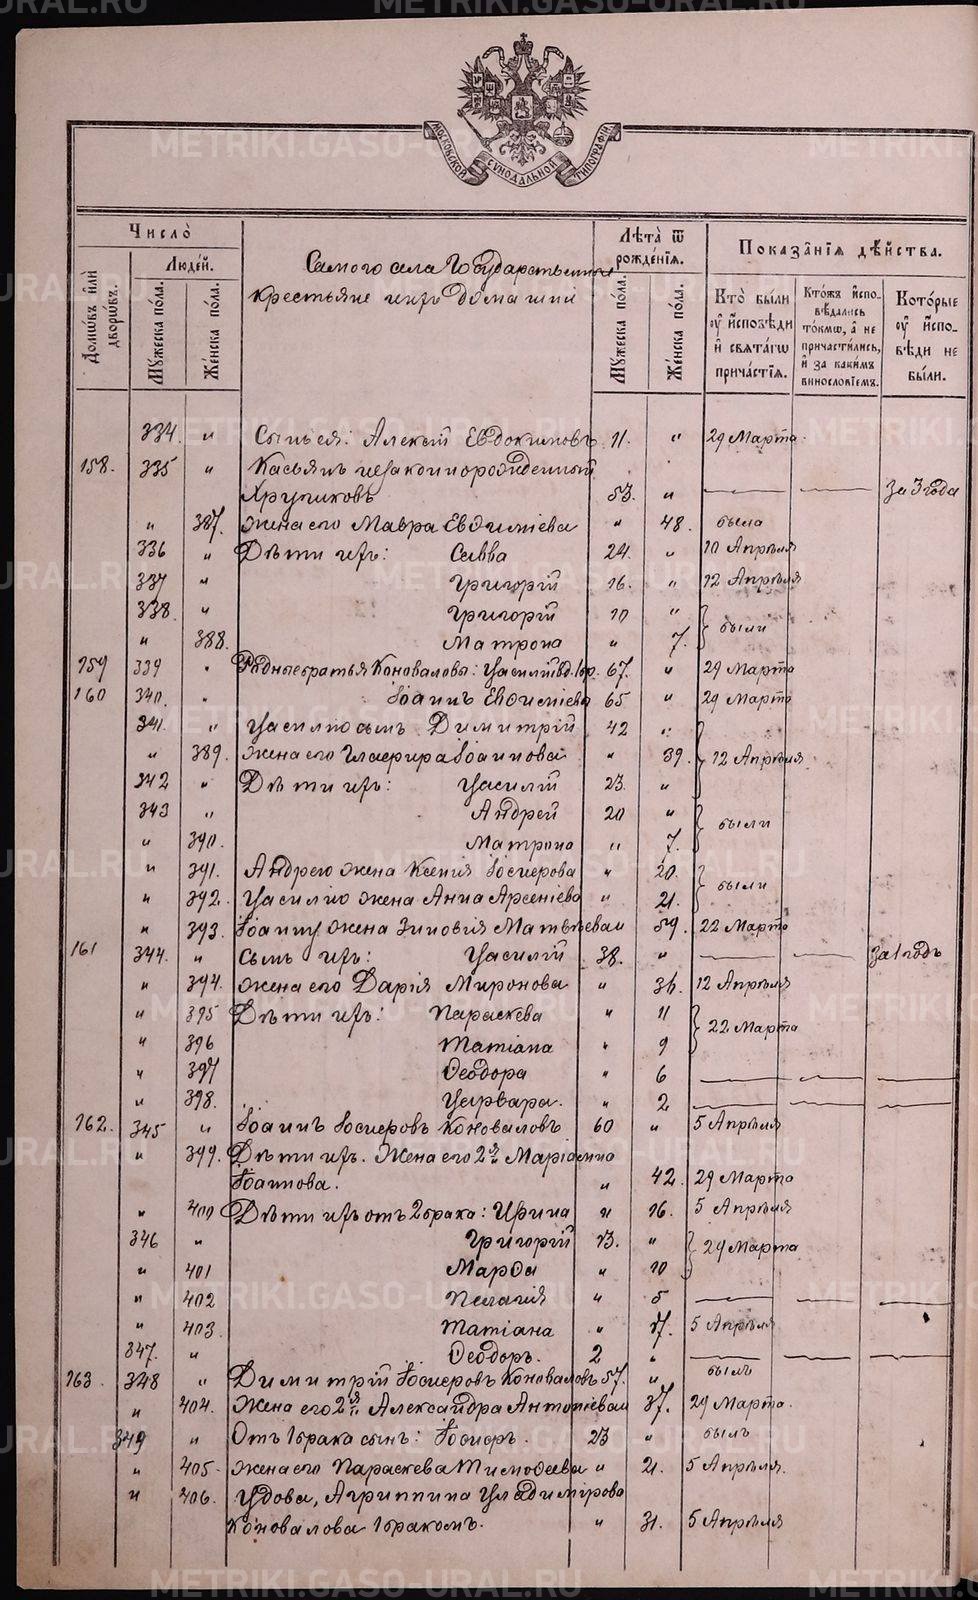 METRIKI.GASO-URAL.RU
МОСКОВСКОЙ СѴНОДАЛЬНОЙ ТИПОГРАФІИ
Число̀
Люде́й.
Домѡ́въ и҆лѝ дворѡ́въ.
Мꙋ́жеска по́ла.
Же́нска по́ла.
Самого села Государственные
крестьяне и ихъ домашніе
Лѣ́та ѿ рожде́нїѧ.
Мꙋ́жеска по́ла.
Же́нска по́ла.
Показа̂нїѧ дѣ́йства.
Кто̀ бы́ли оу҆ и҆спо́вѣди и҆ свѧта́гѡ прича́стїѧ.
Кто́жъ и҆спо-вѣ́дались то́кмѡ, а҆ не причасти́лись, и҆ за каки́мъ винословїемъ.
Кото́рые оу҆ и҆спо-вѣди не бы́ли.
334. " Сынъ ея: Алексѣй Евдокимовъ 11. " 29 Марта
158. 335 " Касьянъ незаконнорожденный
Хрущиковъ 53. " За 3 года
" 387. Жена его Мавра Евѳиміева " 48. была
336 " Дѣти ихъ: Савва 24. " 10 Апрѣля
337 " Григорій 16. " 12 Апрѣля
338. " Григорій 10 " были
" 388. Матрона " 7.
159 339 " Родные братья Коноваловы: Василій вд. 1бр. 67. " 29 Марта
160 340. " Іоаннъ Евѳиміевъ 65 " 29 Марта
341. " Василію сынъ Димитрій 42 "
" 389. Жена его Глафира Іоаннова " 39. 12 Апрѣля
342 " Дѣти ихъ: Василій 23. "
343 " Андрей 20 " были
" 390. Матрона " 7.
" 391. Андрею жена Ксенія Іосифова " 20. были
" 392. Василію жена Анна Арсеніева " 21.
" 393. Іоанну жена Зиновія Матвѣева " 59. 22 Марта
161 344. " Сынъ ихъ: Василій 38. " За 1 годъ
" 394. Жена его Дарія Миронова " 36. 12 Апрѣля
" 395 Дѣти ихъ: Параскева " 11 22 Марта
" 396 Татіана " 9
" 397 Ѳеодора " 6
" 398. Варвара. " 2
162. 345 " Іоаннъ Іосифовъ Коноваловъ 60 " 5 Апрѣля
" 399. Дѣти ихъ. Жена его 2я Маріамна
Іоаннова. " 42. 29 Марта
" 400 Дѣти ихъ отъ 2 брака: Ирина " 16. 5 Апрѣля
346 " Григорій 13. " 29 Марта
" 401 Марѳа " 10
" 402 Пелагія " 5
" 403. Татіана " 17. 5 Апрѣля
347. " Ѳеодоръ. 2 "
163. 348 " Димитрій Іосифовъ Коноваловъ 57. " былъ
" 404. Жена его 2я Александра Антоніева " 37. 29 Марта.
349 " Отъ 1 брака сынъ: Іосифъ. 23 " былъ
" 405. Жена его Параскева Тимоѳеева " 21. 5 Апрѣля.
" 406. Вдова, Агриппина Владимірова
Коновалова 1 бракомъ. " 31. 5 Апрѣля